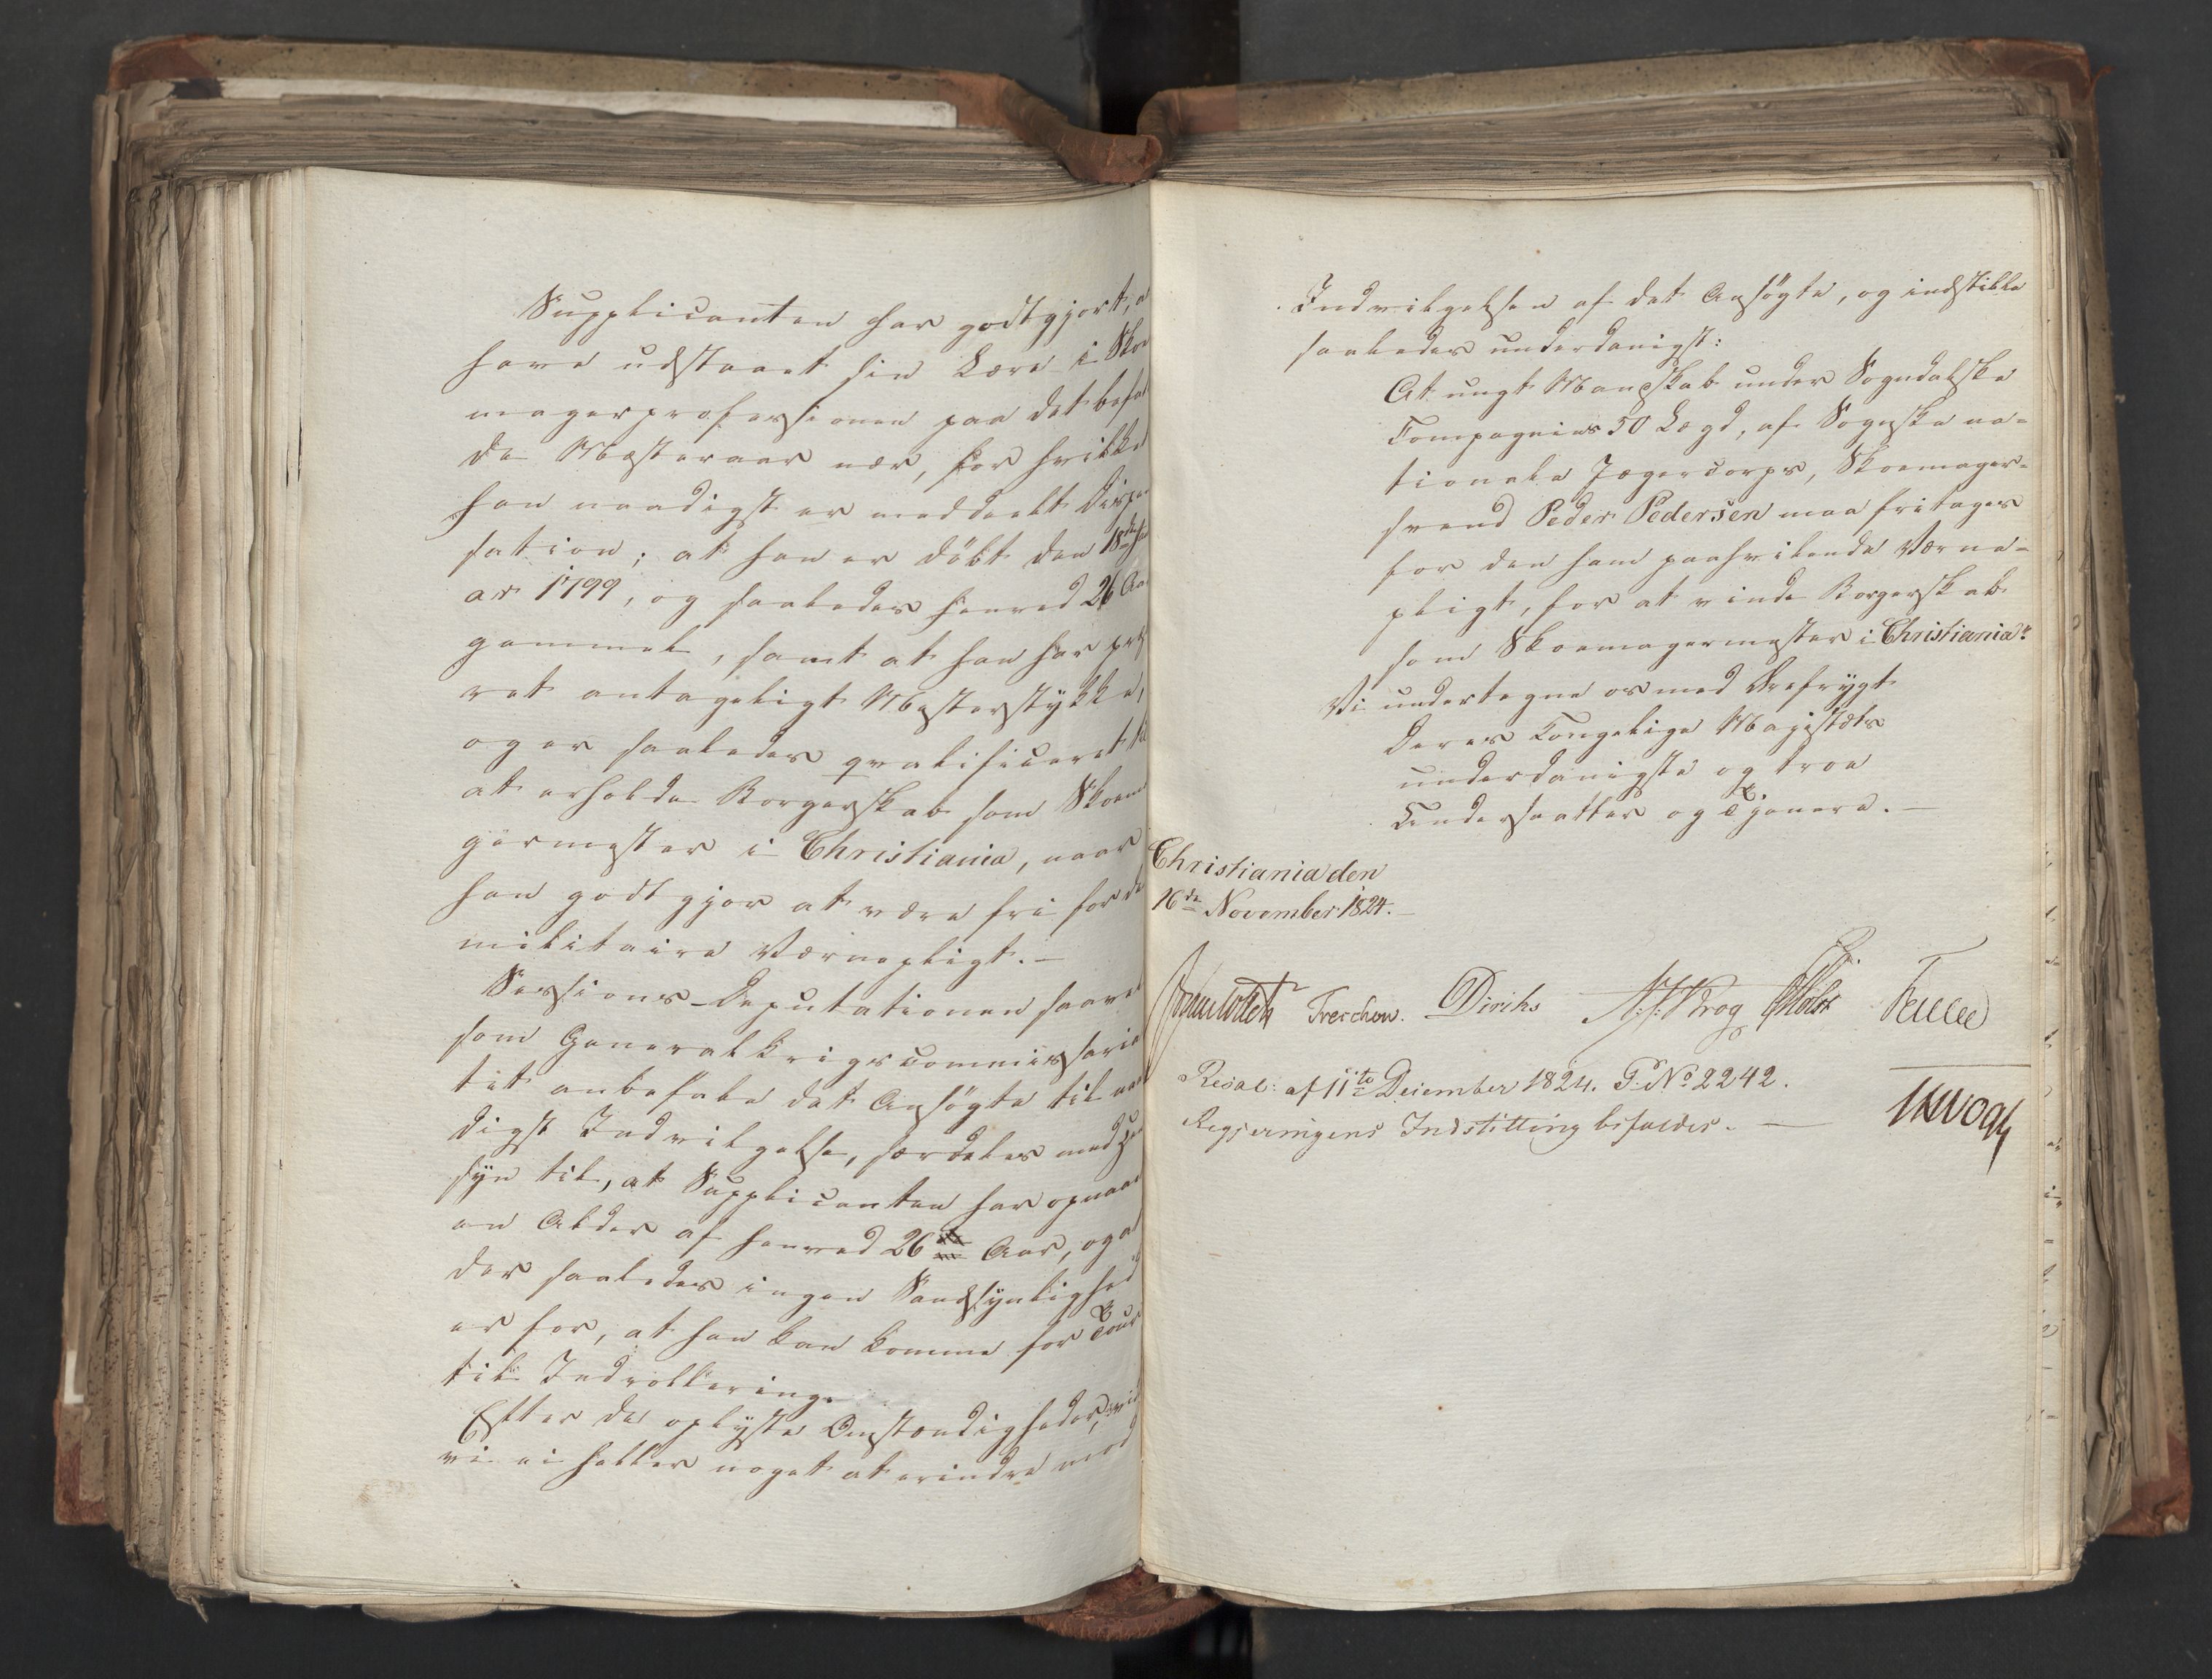 Supplicanten har godtgjort, a
have udstaaet sin Lære i Skoe
magerprofessionen paa det befal
de Mesteraar nær, for hvilket
han naadigst er meddeelt Dispen
sation; at han er döbt den 18de
ar 1799, og saaledes henved 26 Aar
gammel, samt at han har præ
ret antageligt Mesterstykke,
og er saaledes qvalificeret til
at erholde Borgerskab som Skoema
germester i Christiania, naar
han godtgjør at være fri for den
militaire Værnepligt.—
Sessions-Deputationen saavel
som Generalkrigscommissaria
tet anbefale det Ansøgte til naa
digst Indvilgelse, særdeles med Hen
syn til, at Supplicanten har opnaaet
en Alder af henved 26 Aar, og at
der saaledes ingen Sandsynlighed
er for, at han kan komme for Tour
til Indrollering.
Efter de oplyste Omstændigheder,
vi ei heller noget at erindre mod
Indvilgelsen af det Ansøgte, og indstille
saaledes underdanigst:
At ungt Mandskab under Sogndalske
Compagnies 50 Lægd, af Sognske na=
tionale Jægercorps, Skoemager=
svend Peder Pedersen maa fritages
for den ham paahvilende Værne=
pligt, for at vinde Borgerskab
som Skoemagermester i Christiania."
Vi undertegne os med Ærefrygt
Deres Kongelige Majestæts
underdanigste og troe
Undersaatter og Tjenere.—
Christiania den
16de November 1824.—
Jonas Collett Treschow. Diriks N: J: Krog Holst Fasting
Resol: af 11te December 1824. P: No 2242.
Regjeringens Indstilling bifaldes.—